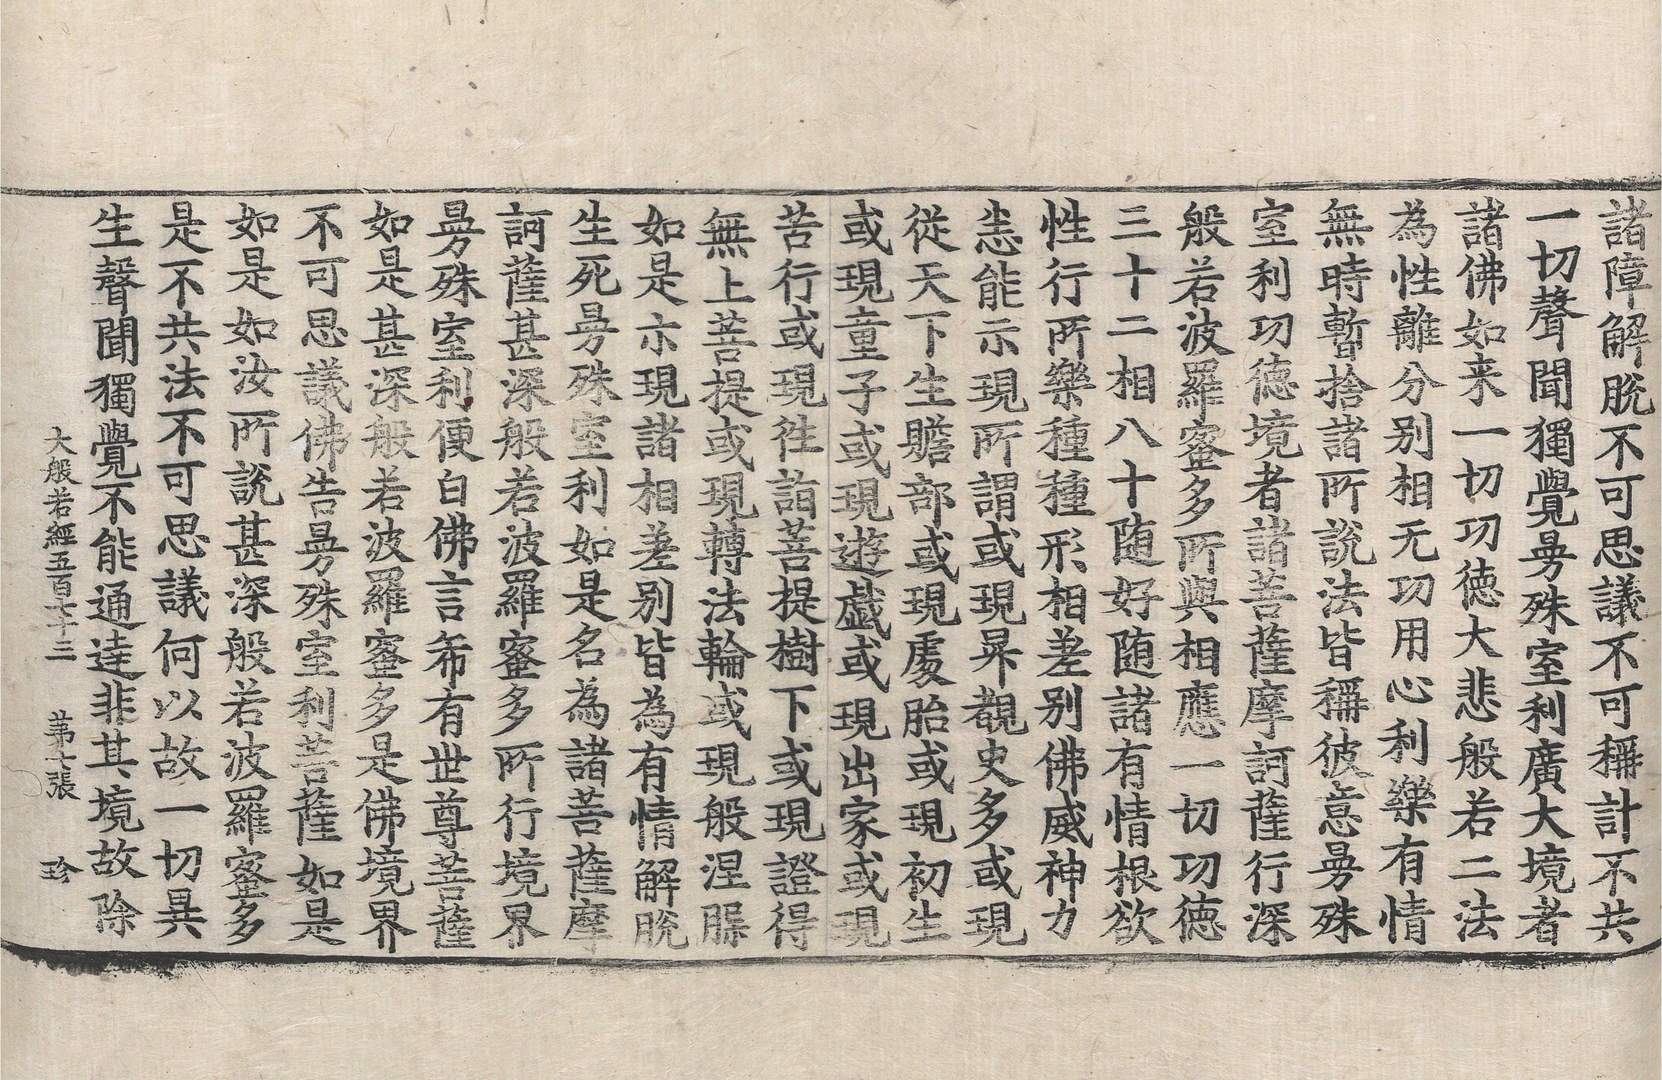 諸障解脫不可思議不可稱計不共
一切聲聞獨覺曼殊室利廣大境者
諸佛如来一切功德大悲般若二法
為性離分别相无功用心利樂有情
無時暫捨諸所說法皆稱彼意曼殊
室利功德境者諸菩薩摩訶薩行深
般若波羅蜜多所與相應一切功德
三十二相八十随好随諸有情根欲
性行所樂種種形相差别佛威神力
悉能示現所謂或現昇覩史多或現
從天下生贍部或現處胎或現初生
或現童子或現遊戲或現出家或現
苦行或現往詣菩提樹下或現證得
無上菩提或現轉法輪或現般涅槃
如是示現諸相差别皆為有情解脫
生死曼殊室利如是名為諸菩薩摩
訶薩甚深般若波羅蜜多所行境界
曼殊室利便白佛言希有世尊菩薩
如是甚深般若波羅蜜多是佛境界
不可思議佛告曼殊室利菩薩如是
如是如汝所說甚深般若波羅蜜多
是不共法不可思議何以故一切異
生聲聞獨覺不能通達非其境故除
大般若經五百七十三　第七張　珍